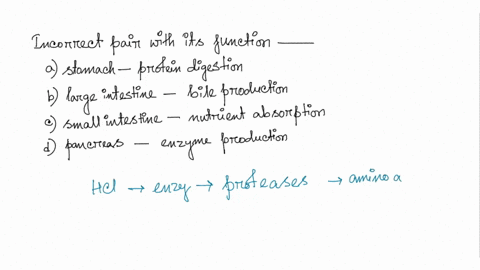 Incorrect pair with its function ——
a) stomach — protein digestion
b) large intestine — bile production
c) small intestine — nutrient absorption
d) pancreas — enzyme production
HCl → enzy → proteases → amino a